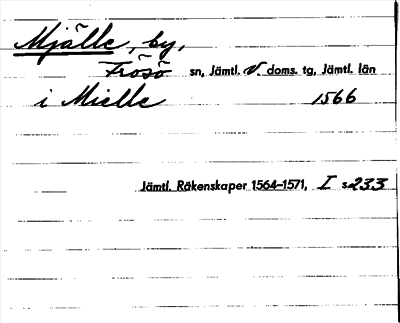 Mjälle, by,
Frösö sn, Jämtl. V. doms. tg, Jämtl. län
i Mielle 1566
Jämtl. Räkenskaper 1564–1571, I s 233